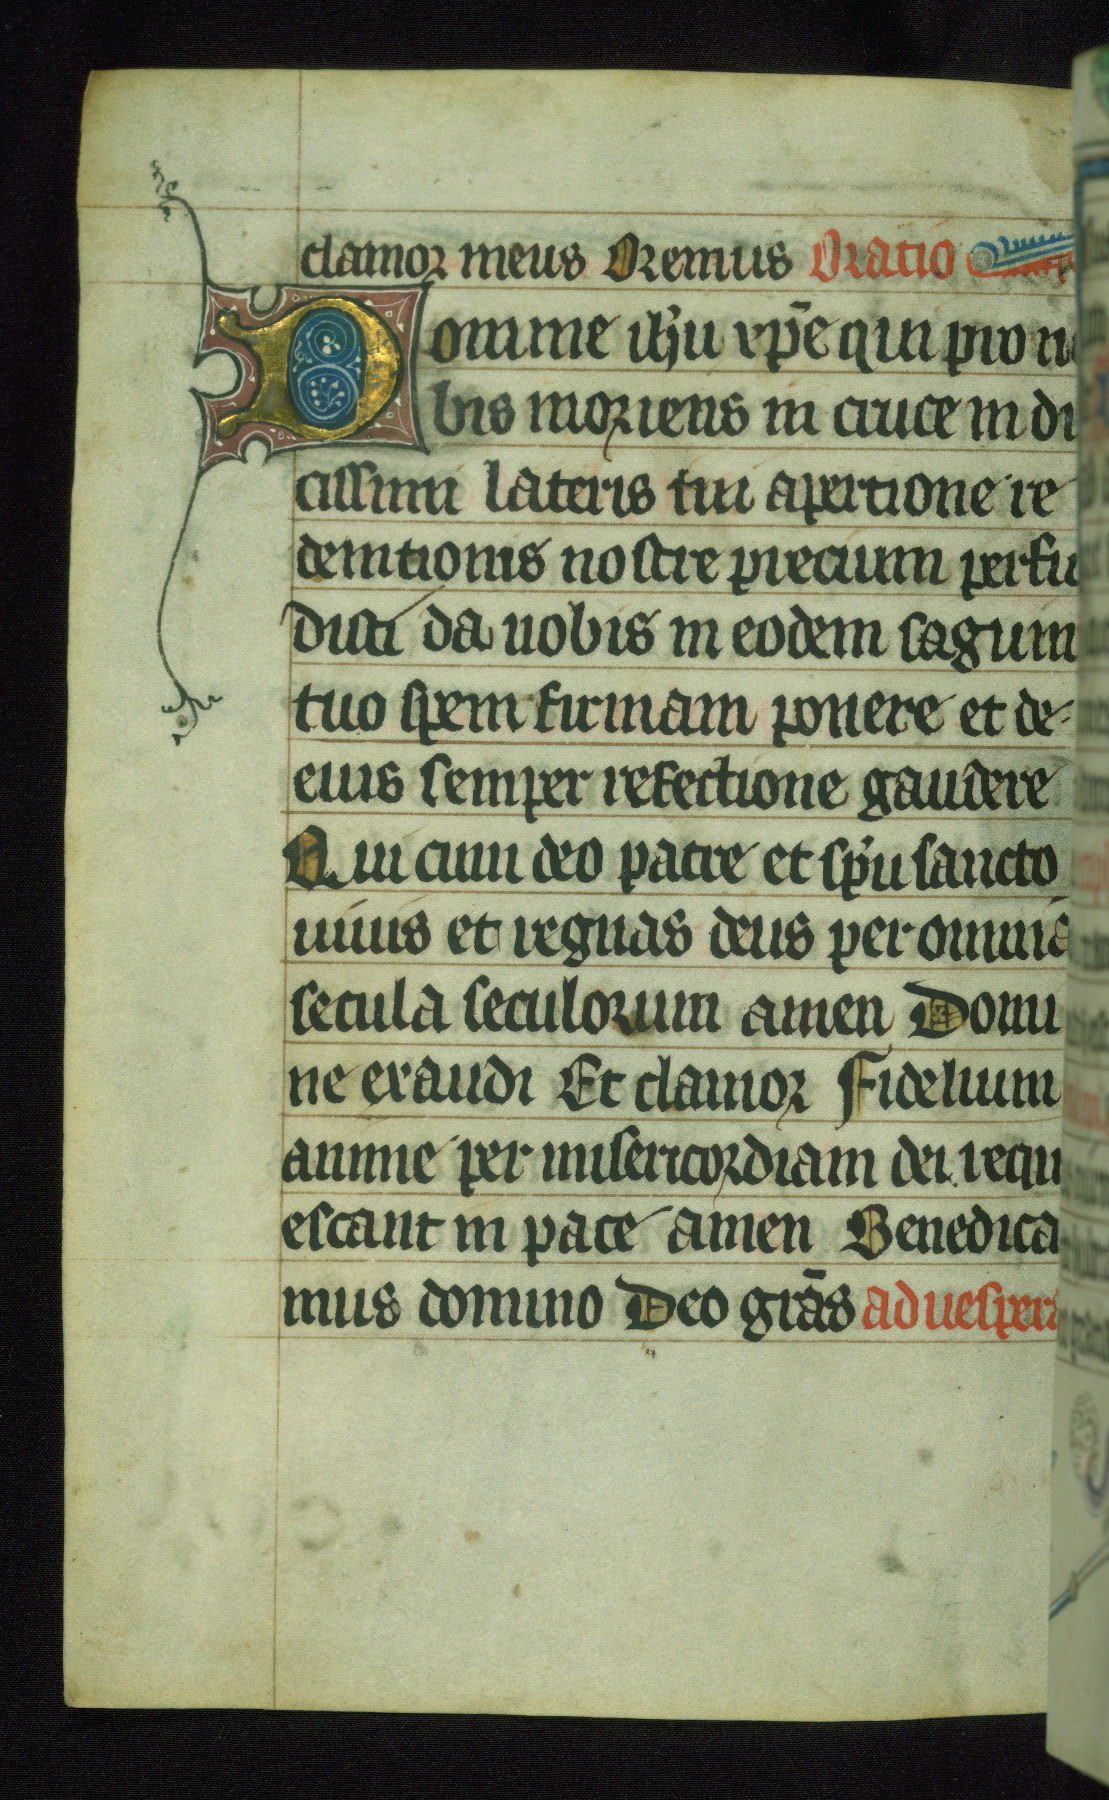 clamor meus Oremus Oratio
Domine ihu xpē qui pro no
bis moriens in cruce in di
cissimi lateris tui apertione re
demtionis nostre precium perfu
disti da nobis in eodem sagum
tuo spem firmam ponere et de
eius semper refectione gaudere
Qui cum deo patre et spu sancto
uiuis et regnas deus per omnia
secula seculorum amen Domi
ne exaudi Et clamor Fidelium
anime per misericordiam dei requi
escant in pace amen Benedica
mus domino Deo grās ad uespera